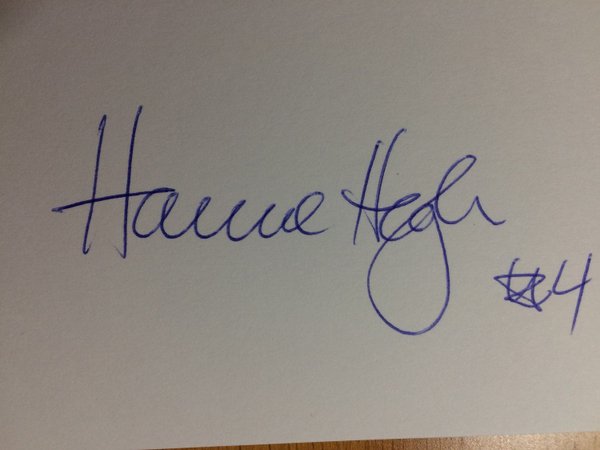 Hanne Hegh
#4